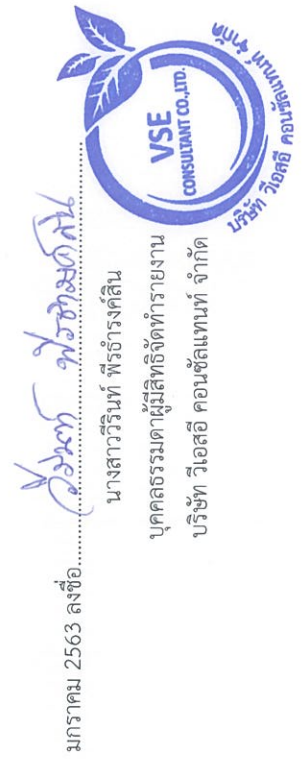 มกราคม 2563 ลงชื่อ.....วีรินท์ พีรธำรงค์สิน.....
นางสาววีรินท์ พีรธำรงค์สิน
บุคคลธรรมดาผู้มีสิทธิจัดทำรายงาน
บริษัท วีเอสอี คอนซัลแทนท์ จำกัด
VSE
CONSULTANT CO.,LTD.
บริษัท วีเอสอี คอนซัลแทนท์ จำกัด